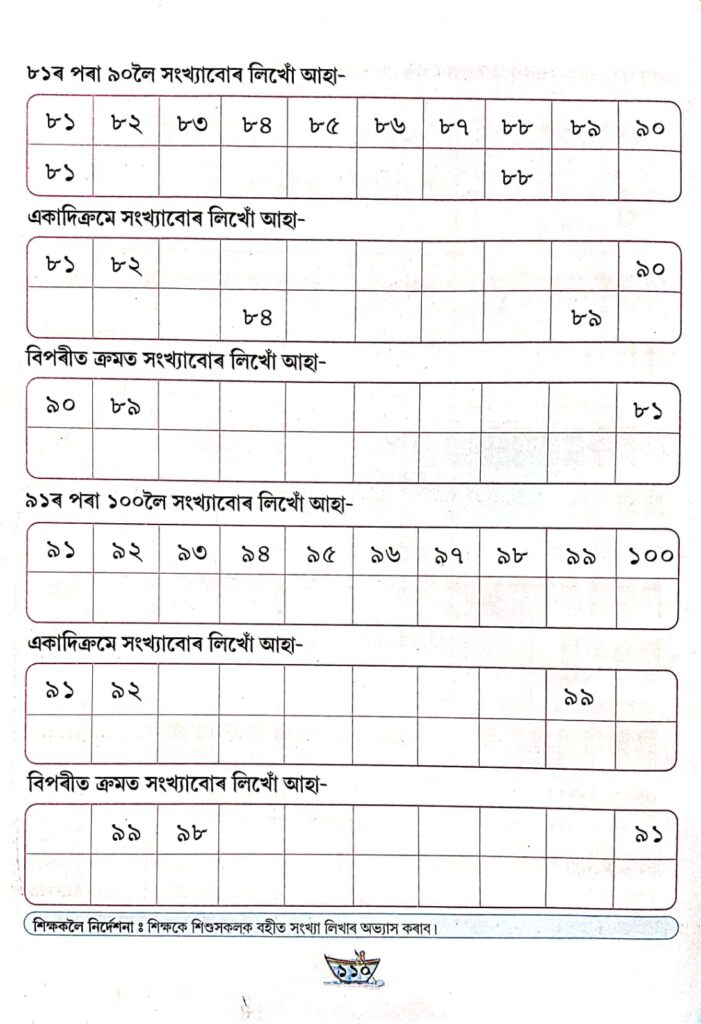 ৮১ৰ পৰা ৯০লৈ সংখ্যাবোৰ লিখোঁ আহা-
৮১ ৮২ ৮৩ ৮৪ ৮৫ ৮৬ ৮৭ ৮৮ ৮৯ ৯০
৮১ ৮৮
একাদিক্ৰমে সংখ্যাবোৰ লিখোঁ আহা-
৮১ ৮২ ৯০
৮৪ ৮৯
বিপৰীত ক্ৰমত সংখ্যাবোৰ লিখোঁ আহা-
৯০ ৮৯ ৮১
৯১ৰ পৰা ১০০লৈ সংখ্যাবোৰ লিখোঁ আহা-
৯১ ৯২ ৯৩ ৯৪ ৯৫ ৯৬ ৯৭ ৯৮ ৯৯ ১০০
একাদিক্ৰমে সংখ্যাবোৰ লিখোঁ আহা-
৯১ ৯২ ৯৯
বিপৰীত ক্ৰমত সংখ্যাবোৰ লিখোঁ আহা-
৯৯ ৯৮ ৯১
শিক্ষকলৈ নিৰ্দেশনা ঃ শিক্ষকে শিশুসকলক বহীত সংখ্যা লিখাৰ অভ্যাস কৰাব।
১১০